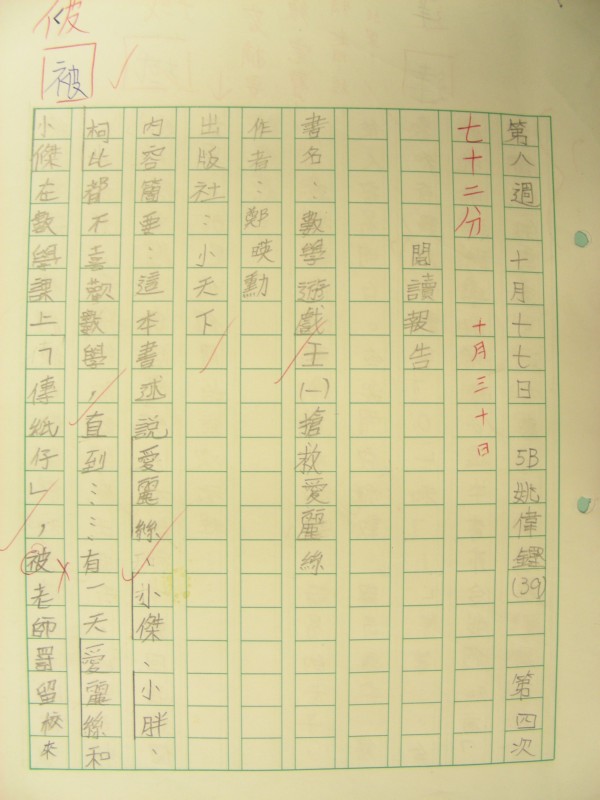 第八週 十月十七日 5B姚偉鏗(39) 第四次
七十二分 十月三十日
閱讀報告
書名：數學遊戲王(一)搶救愛麗絲
作者：鄭暎勳
出版社：小天下
內容簡要：這本書述說愛麗絲、小傑、小胖、
柯比都不喜歡數學，直到……有一天愛麗絲和
小傑在數學課上「傳紙仔」，被老師罸留校來
被